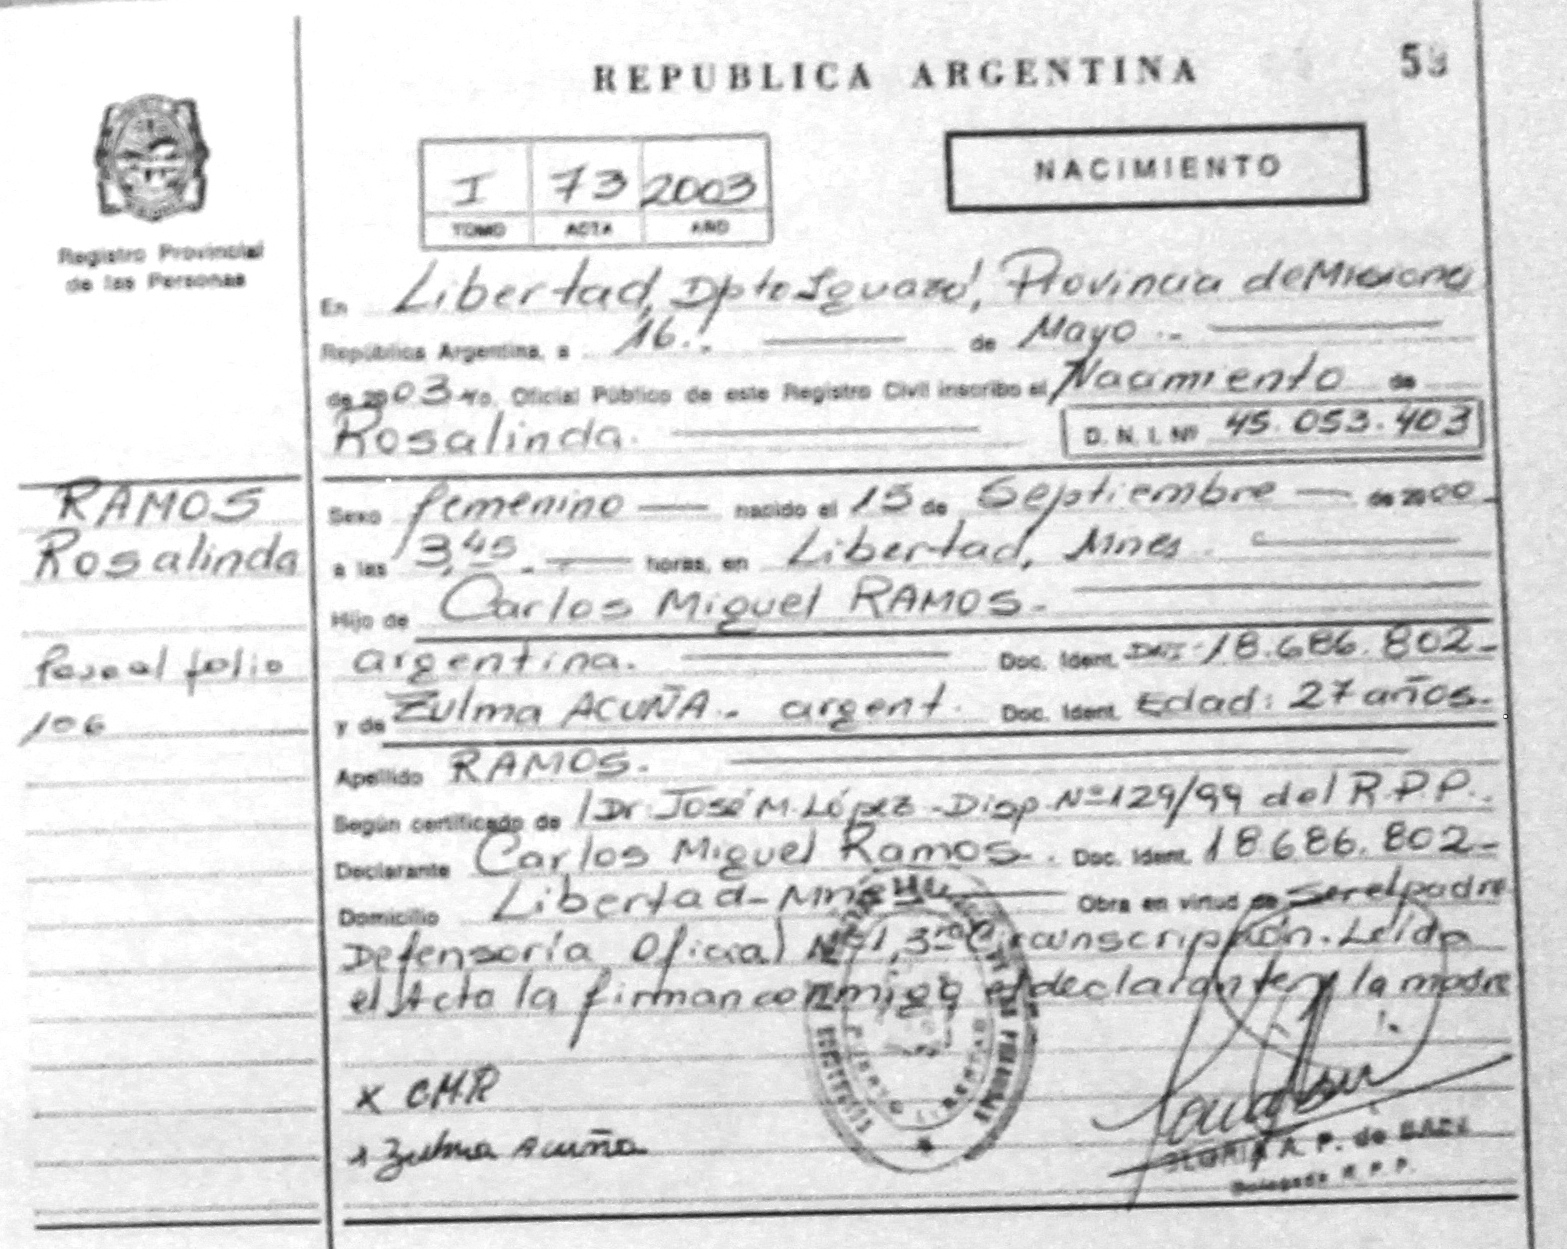 REPUBLICA ARGENTINA
Registro Provincial
de las Personas
I 73 2003
TOMO ACTA AÑO
NACIMIENTO
En Libertad, Dpto Iguazú, Provincia de Misiones
República Argentina, a 16.- de Mayo.-
de 2003 yo, Oficial Público de este Registro Civil inscribo el Nacimiento de
Rosalinda. D. N. I. Nº 45.053.403
RAMOS
Rosalinda
Pase al folio
106
Sexo femenino nacido el 15 de Septiembre de 2000
a las 3,45 horas, en Libertad, Mnes.
Hijo de Carlos Miguel RAMOS.-
argentina. Doc. Ident. DNI 18.686.802-
y de Zulma ACUÑA.- argent. Doc. Ident. Edad: 27 años.-
Apellido RAMOS.
Según certificado de Dr. José M. López - Disp. Nº 129/99 del R.P.P.
Declarante Carlos Miguel Ramos. Doc. Ident. 18.686.802-
Domicilio Libertad - Mnes Obra en virtud de ser el padre
Defensoría Oficial Nº 1, 3ra Circunscripción. Leída
el Acta la firman conmigo el declarante y la madre
x C.M.R
x Zulma Acuña
PUERTO LIBERTAD
GLORIA A. P. de
Delegada R. P. P.